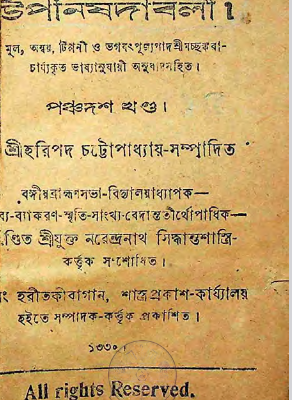 উপনিষদাবলী।
মূল, অন্বয়, টিপ্পনী ও ভগবৎপূজ্যপাদশ্রীমচ্ছঙ্করা-
চার্য্যকৃত ভাষ্যানুযায়ী অনুবাদসহিত।
পঞ্চদশ খণ্ড।
শ্রীহরিপদ চট্টোপাধ্যায়-সম্পাদিত
বঙ্গীয়ব্রাহ্মণসভা-বিদ্যালয়াধ্যাপক—
ব্য-ব্যাকরণ-স্মৃতি-সাংখ্য-বেদান্ততীর্থোপাধিক—
ণ্ডিত শ্রীযুক্ত নরেন্দ্রনাথ সিদ্ধান্তশাস্ত্রি-
কর্ত্তৃক সংশোধিত।
নং হরীতকীবাগান, শাস্ত্রপ্রকাশ-কার্য্যালয়
হইতে সম্পাদক-কর্ত্তৃক প্রকাশিত।
১৩৩০
All rights Reserved.